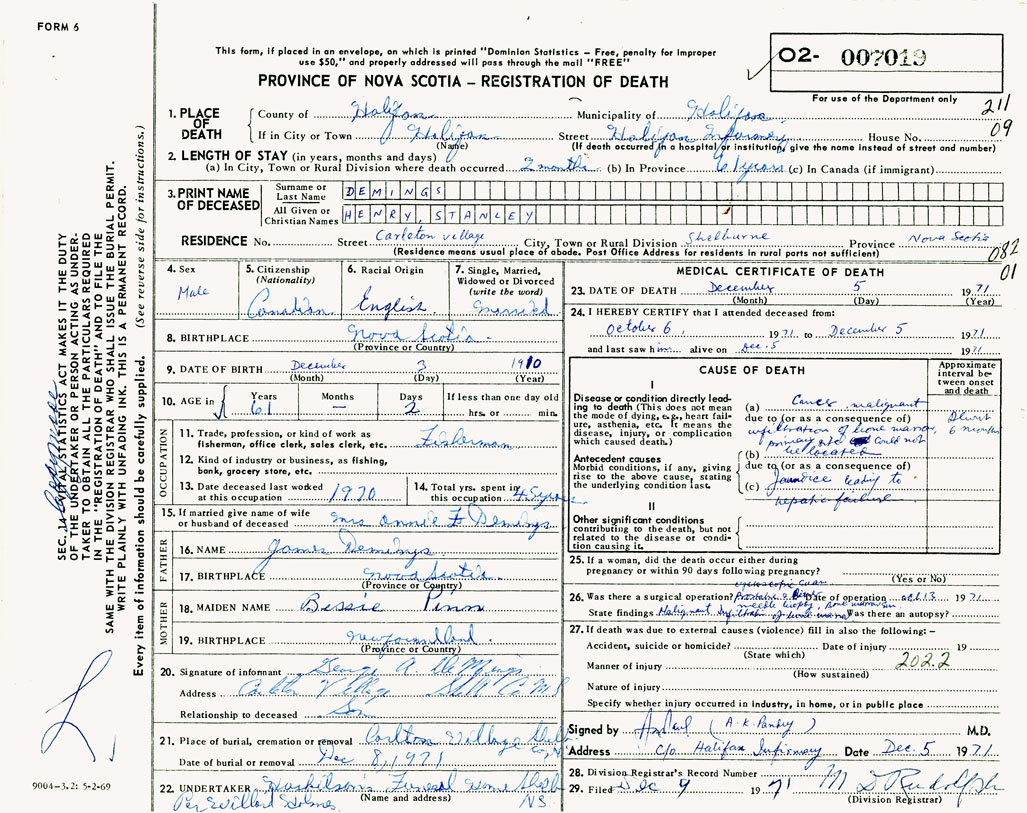 FORM 6
This form, if placed in an envelope, on which is printed "Dominion Statistics – Free, penalty for improper
use $50," and properly addressed will pass through the mail "FREE"
PROVINCE OF NOVA SCOTIA – REGISTRATION OF DEATH
02- 007019
For use of the Department only
211
09
1. PLACE OF DEATH
County of Halifax Municipality of Halifax
If in City or Town Halifax Street Halifax Infirmary House No.
(Name) (If death occurred in a hospital or institution, give the name instead of street and number)
2. LENGTH OF STAY (in years, months and days)
(a) In City, Town or Rural Division where death occurred 2 months (b) In Province 61 years (c) In Canada (if immigrant)
3. PRINT NAME OF DECEASED
Surname or Last Name DEMINGS
All Given or Christian Names HENRY, STANLEY
RESIDENCE No. Street Carleton Village City, Town or Rural Division Shelburne Province Nova Scotia
(Residence means usual place of abode. Post Office Address for residents in rural parts not sufficient)
082
01
4. Sex
Male
5. Citizenship (Nationality)
Canadian
6. Racial Origin
English
7. Single, Married, Widowed or Divorced (write the word)
Married
8. BIRTHPLACE Nova Scotia
(Province or Country)
9. DATE OF BIRTH December 3 1910
(Month) (Day) (Year)
10. AGE in
Years Months Days If less than one day old
61 — 2 hrs. or min.
OCCUPATION
11. Trade, profession, or kind of work as fisherman, office clerk, sales clerk, etc. Fisherman
12. Kind of industry or business, as fishing, bank, grocery store, etc.
13. Date deceased last worked at this occupation 1970
14. Total yrs. spent in this occupation 45 years
15. If married give name of wife or husband of deceased Mrs Annie F Demings
FATHER
16. NAME James Demings
17. BIRTHPLACE Nova Scotia
(Province or Country)
MOTHER
18. MAIDEN NAME Bessie Penn
19. BIRTHPLACE Newfoundland
(Province or Country)
20. Signature of informant George A. DeMings
Address Carleton Village Shel Co N S
Relationship to deceased Son
21. Place of burial, cremation or removal Carlton Village Shelb Co, N.S.
Date of burial or removal Dec 8, 1971
22. UNDERTAKER Huskilson's Funeral Home Shelb
(Name and address) N.S.
Per Willard Holmes
MEDICAL CERTIFICATE OF DEATH
23. DATE OF DEATH December 5 1971
(Month) (Day) (Year)
24. I HEREBY CERTIFY that I attended deceased from:
October 6, 1971 to December 5 1971
and last saw him alive on Dec. 5 1971
CAUSE OF DEATH
Approximate interval between onset and death
I
Disease or condition directly leading to death (This does not mean the mode of dying, e.g., heart failure, asthenia, etc. It means the disease, injury, or complication which caused death.)
(a) Cancer malignant
due to (or as a consequence of)
infiltration of bone marrow,
primary site could not
(b) be located
6 months
Antecedent causes
Morbid conditions, if any, giving rise to the above cause, stating the underlying condition last.
due to (or as a consequence of)
(c) Jaundice leading to
hepatic failure
II
Other significant conditions
contributing to the death, but not related to the disease or condition causing it.
25. If a woman, did the death occur either during pregnancy or within 90 days following pregnancy?
(Yes or No)
26. Was there a surgical operation? Date of operation Oct 13 1971
needle biopsy, bone marrow
State findings Malignant Infiltration of bone marrow Was there an autopsy?
27. If death was due to external causes (violence) fill in also the following: –
Accident, suicide or homicide? Date of injury 19
(State which)
202.2
Manner of injury
(How sustained)
Nature of injury
Specify whether injury occurred in industry, in home, or in public place
Signed by (A. K. Pandey) M.D.
Address c/o Halifax Infirmary Date Dec. 5 1971
28. Division Registrar's Record Number
29. Filed Dec 9 1971 M D Rudolph
(Division Registrar)
SEC. 14 VITAL STATISTICS ACT MAKES IT THE DUTY
OF THE UNDERTAKER OR PERSON ACTING AS UNDER-
TAKER TO OBTAIN ALL THE PARTICULARS REQUIRED
IN THE "REGISTRATION OF DEATH" AND TO FILE THE
SAME WITH THE DIVISION REGISTRAR WHO SHALL ISSUE THE BURIAL PERMIT.
WRITE PLAINLY WITH UNFADING INK. THIS IS A PERMANENT RECORD.
Every item of information should be carefully supplied. (See reverse side for instructions.)
9004-3.2: 5-2-69